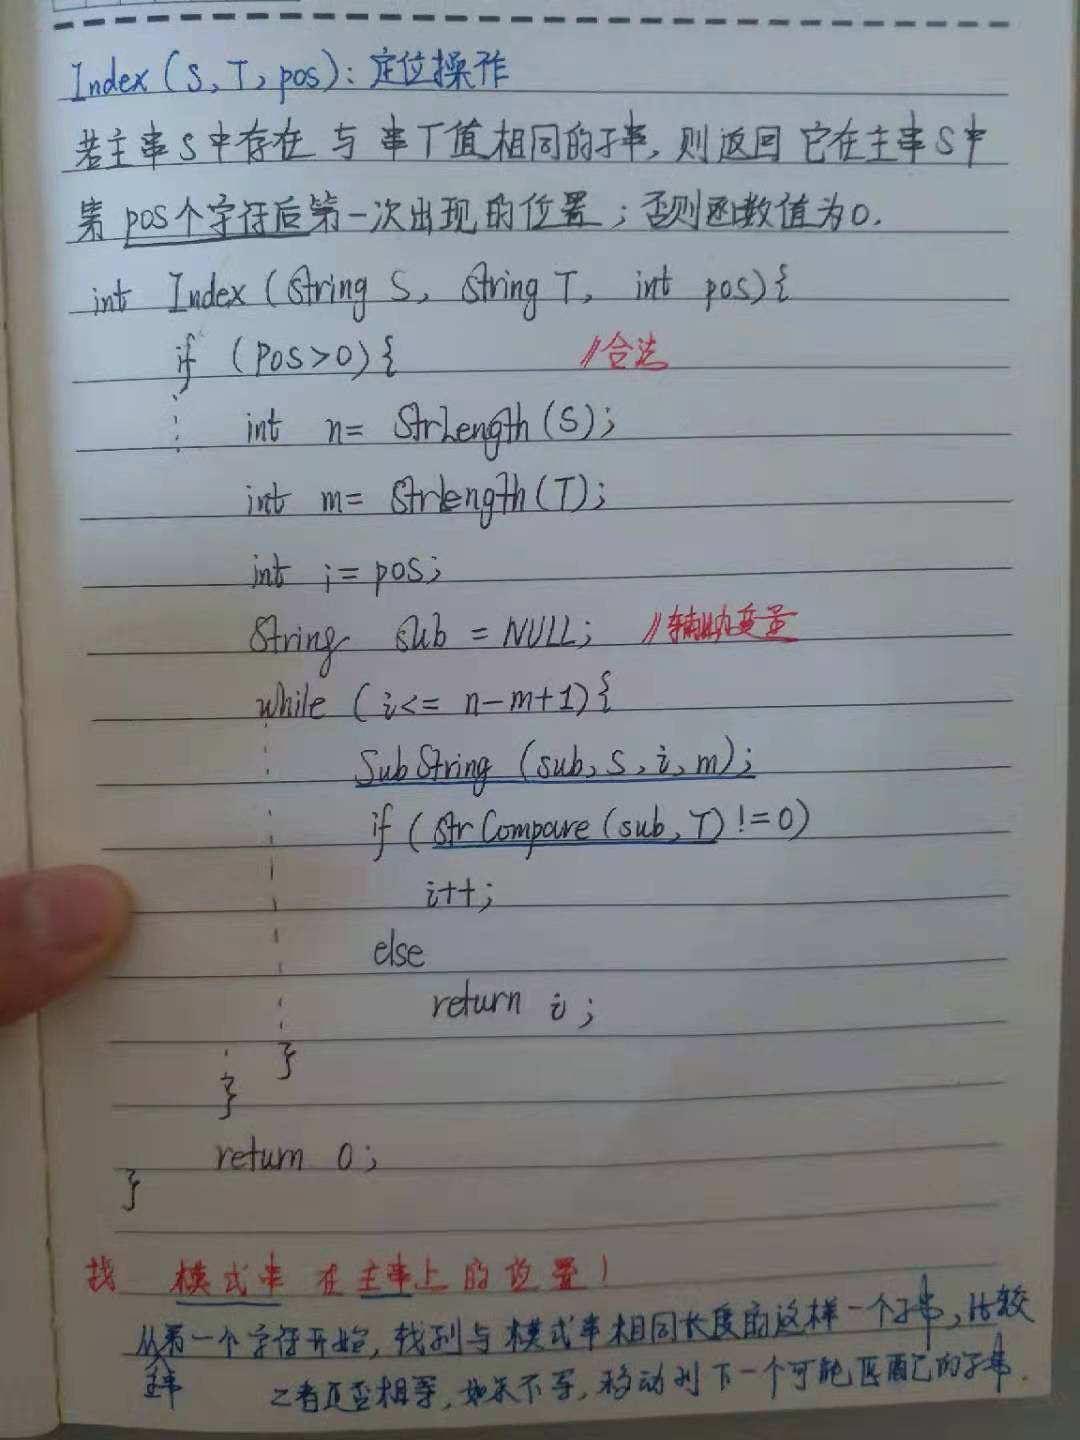 Index(S,T,pos):定位操作
若主串S中存在与串T值相同的子串,则返回它在主串S中
第pos个字符后第一次出现的位置;否则函数值为0.
int Index(String S, String T, int pos){
if (pos>0){ //合法
int n= StrLength(S);
int m= StrLength(T);
int i= pos;
String sub = NULL; //辅助变量
while (i<= n-m+1){
SubString (sub,S,i,m);
if (StrCompare(sub,T)!=0)
i++;
else
return i;
}
}
return 0;
}
找 模式串 在主串上的位置!
从第一个字符开始,找到与模式串相同长度的这样一个子串,比较
主串 二者是否相等,如果不等,移动到下一个可能匹配的子串.